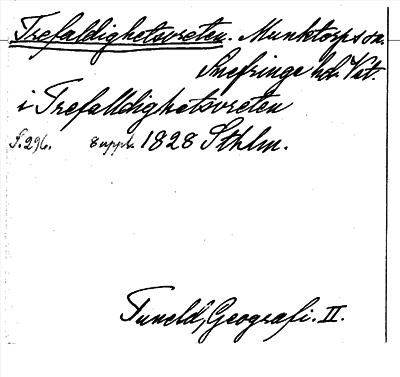 Trefaldighetsvreten. Munktorps sn.
Snefringe hd. Vst.
i Trefalldighetsvreten
s. 296. 8 uppl. 1828 Sthlm.
Tuneld, Geografi. II.